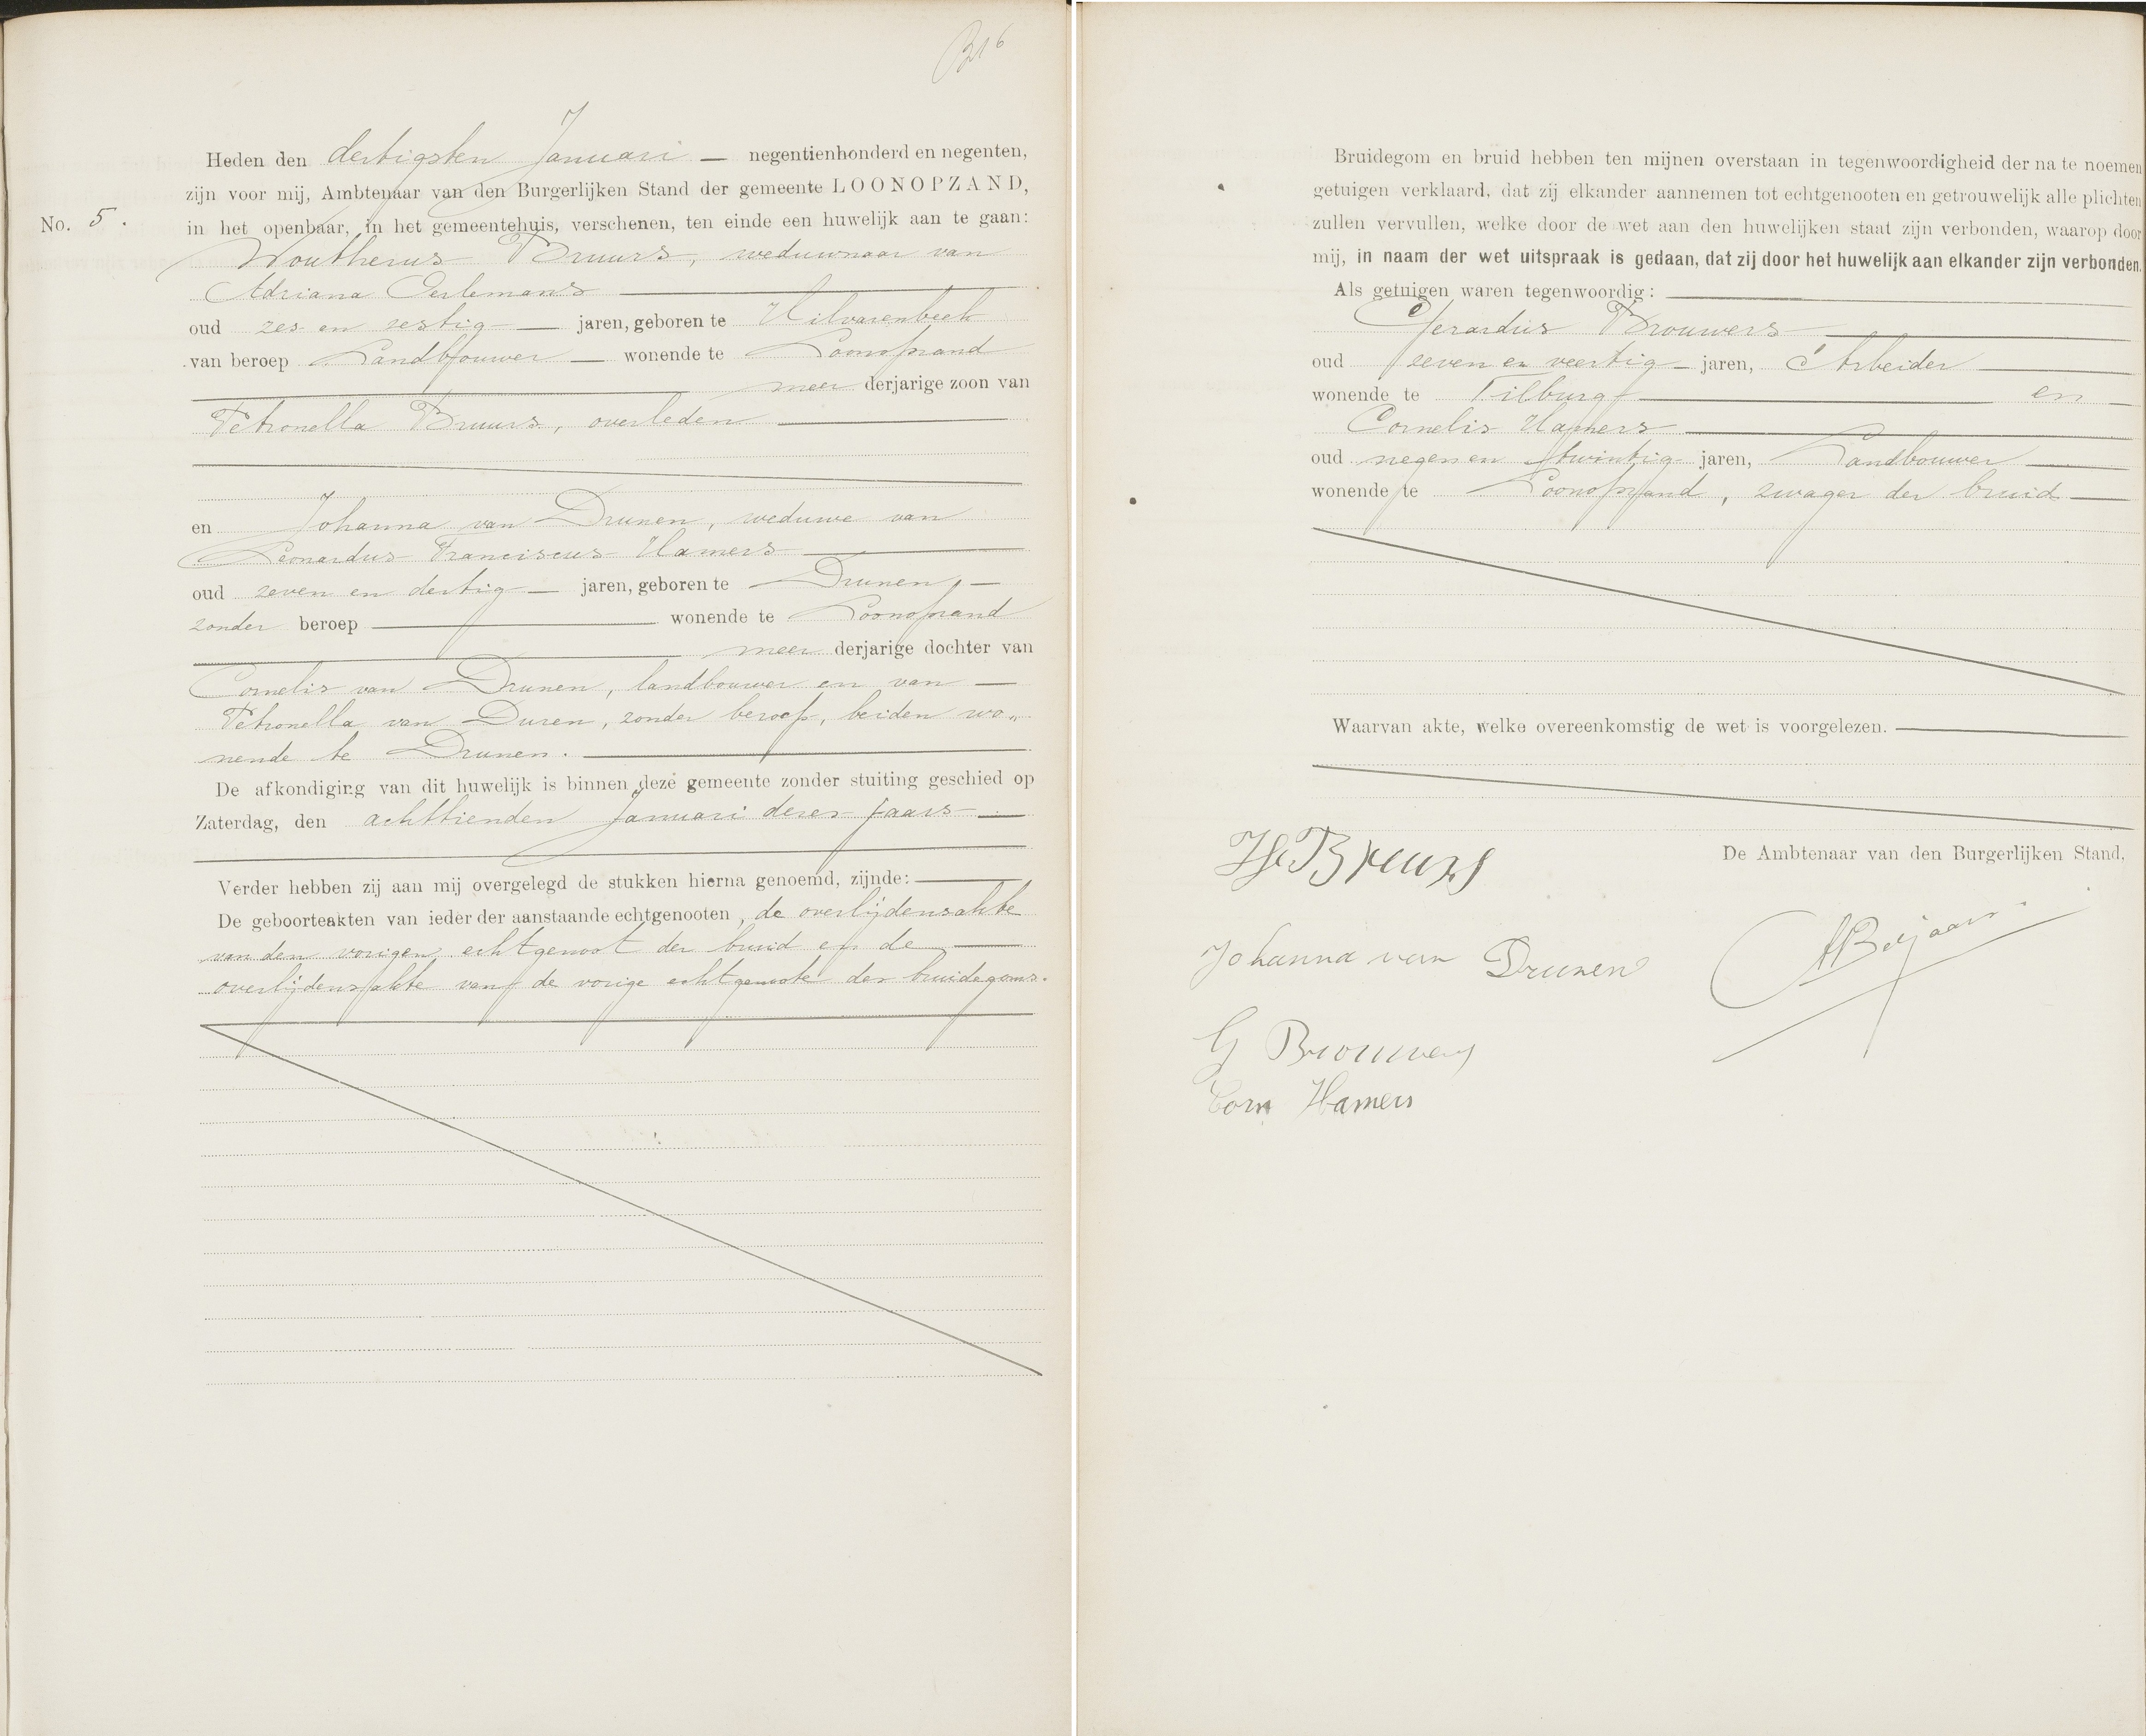 B16
Heden den dertigsten Januari — negentienhonderd en negenten,
zijn voor mij, Ambtenaar van den Burgerlijken Stand der gemeente LOONOPZAND,
No. 5.
in het openbaar, in het gemeentehuis, verschenen, ten einde een huwelijk aan te gaan:
Woutherus Bruurs, weduwnaar van
Adriana Oerlemans
oud zes en zestig — jaren, geboren te Hilvarenbeek
van beroep Landbouwer — wonende te Loonopzand
meer derjarige zoon van
Petronella Bruurs, overleden
en Johanna van Drunen, weduwe van
Leonardus Franciscus Hamers
oud zeven en dertig — jaren, geboren te Drunen, —
zonder beroep — wonende te Loonopzand
meer derjarige dochter van
Cornelis van Drunen, landbouwer en van —
Petronella van Duren, zonder beroep, beiden wo„
nende te Drunen.
De afkondiging van dit huwelijk is binnen deze gemeente zonder stuiting geschied op
Zaterdag, den achttienden Januari dezes jaars —
Verder hebben zij aan mij overgelegd de stukken hierna genoemd, zijnde:
De geboorteakten van ieder der aanstaande echtgenooten, de overlijdensakte
van den vorigen echtgenoot der bruid en de —
overlijdensakte van de vorige echtgenoote des bruidegoms.
Bruidegom en bruid hebben ten mijnen overstaan in tegenwoordigheid der na te noemen
getuigen verklaard, dat zij elkander aannemen tot echtgenooten en getrouwelijk alle plichten
zullen vervullen, welke door de wet aan den huwelijken staat zijn verbonden, waarop door
mij, in naam der wet uitspraak is gedaan, dat zij door het huwelijk aan elkander zijn verbonden.
Als getuigen waren tegenwoordig:
Gerardus Brouwers
oud zeven en veertig — jaren, Arbeider
wonende te Tilburg — en —
Cornelis Hamers
oud negen en twintig jaren, Landbouwer
wonende te Loonopzand, zwager der bruid —
Waarvan akte, welke overeenkomstig de wet is voorgelezen.
De Ambtenaar van den Burgerlijken Stand,
Bruurs
Johanna van Drunen
G Brouwers
Corn Hamers